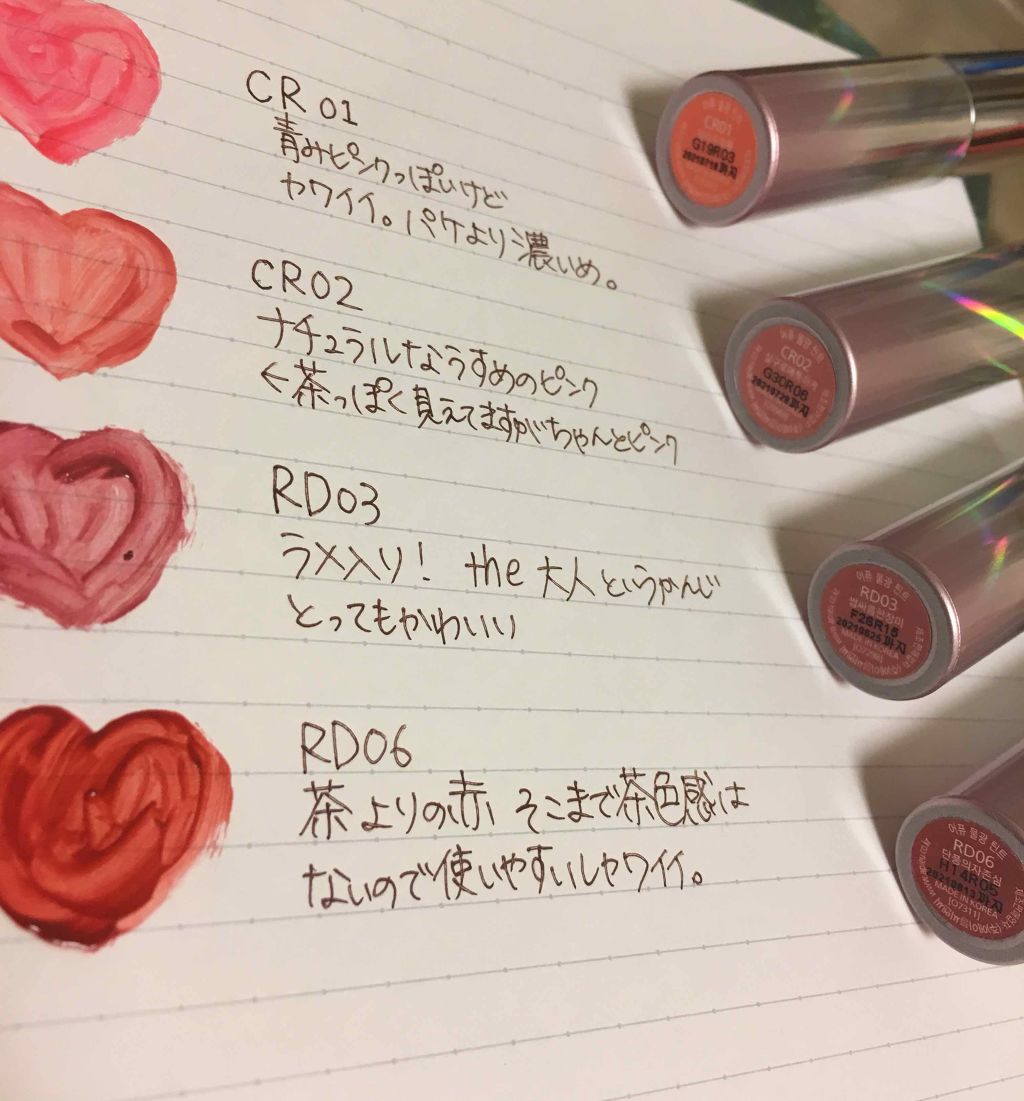 CR 01
青みピンクっぽいけど
ヤワイイ。パケより濃いめ。
CR02
ナチュラルなうすめのピンク
←茶っぽく見えてますがちゃんとピンク
RD03
ラメ入り! the 大人というかんじ
とってもかわいい
RD06
茶よりの赤 そこまで茶色感は
ないので使いやすいしヤワイイ。
CR01
G19R03
20210718까지
어퓨 물광 틴트
CR02
G30R06
20210729까지
어퓨 물광 틴트
RD03
F26R15
20210625까지
MADE IN KOREA
어퓨 물광 틴트
RD06
단풍의자존심
H14R05
20210813까지
MADE IN KOREA
[O7311]